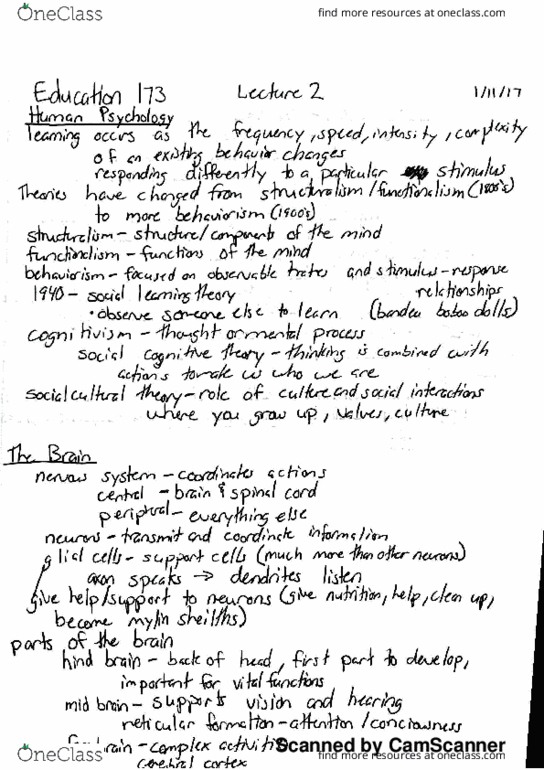 OneClass find more resources at oneclass.com
Education 173 Lecture 2 1/11/17
Human Psychology
learning occurs as the frequency, speed, intensity, complexity
of an existing behavior changes
responding differently to a particular stimulus
Theories have changed from structuralism/functionalism (1800's)
to more behaviorism (1900's)
structuralism - structure/components of the mind
functionalism - functions of the mind
behaviorism - focused on observable traits and stimulus-response
relationships
1940 - social learning theory
• observe someone else to learn (bandeu boboo dolls)
cognitivism - thought or mental process
social cognitive theory - thinking is combined with
actions to make us who we are
social cultural theory - role of culture and social interactions
where you grow up, values, culture
The Brain
nervous system - coordinates actions
central - brain & spinal cord
periptural - everything else
neurons - transmit and coordinate information
glial cells - support cells (much more than other neurons)
axon speaks → dendrites listen
give help/support to neurons (give nutrition, help, clean up,
become mylin sheilths)
parts of the brain
hind brain - back of head, first part to develop,
important for vital functions
mid brain - supports vision and hearing
reticular formation - attention/conciousness
brain - complex activiti
Scanned by CamScanner
cerebral cortex
OneClass find more resources at oneclass.com